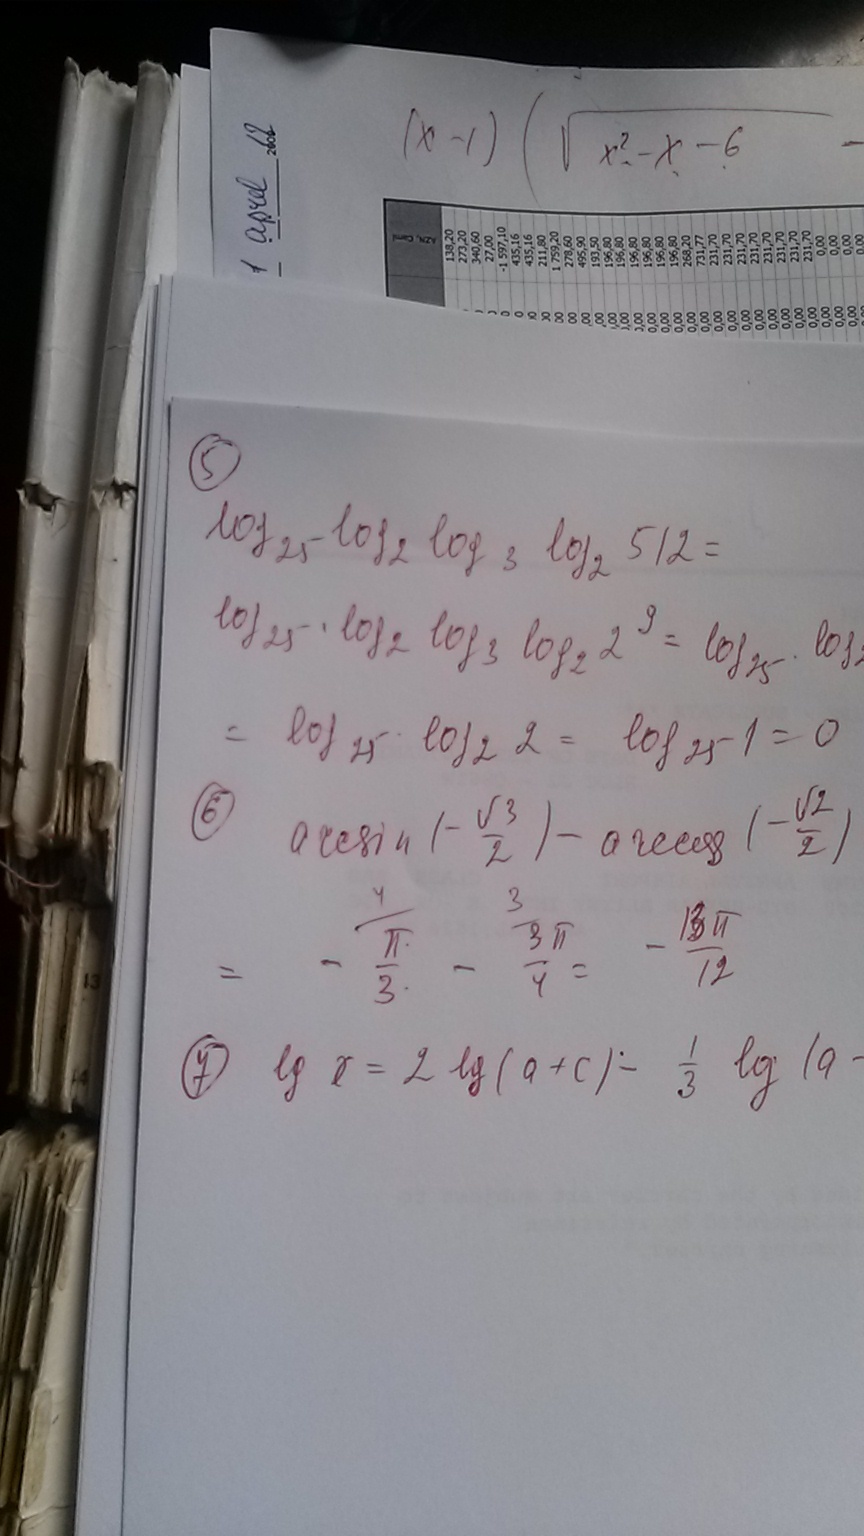 (x-1) (√x²-x-6 -
1 apred 12
2006
138,20
273,20
340,60
27,00
-1 597,10
435,16
435,16
211,80
1 759,20
278,60
495,90
193,50
196,80
196,80
196,80
196,80
196,80
196,80
268,20
731,77
231,70
231,70
231,70
231,70
231,70
231,70
231,70
231,70
0,00
0,00
0,00
0,00
⑤
log₂₅ log₂ log₃ log₂ 512 =
log₂₅ · log₂ log₃ log₂ 2⁹ = log₂₅ · log₂
= log₂₅ · log₂ 2 = log₂₅ 1 = 0
⑥ arcsin (-√3/2) - arccos (-√2/2)
= - 4/ π/3 - 3/ 3π/4 = - 13π/12
⑦ lg x = 2 lg(a+c) - 1/3 lg (a -